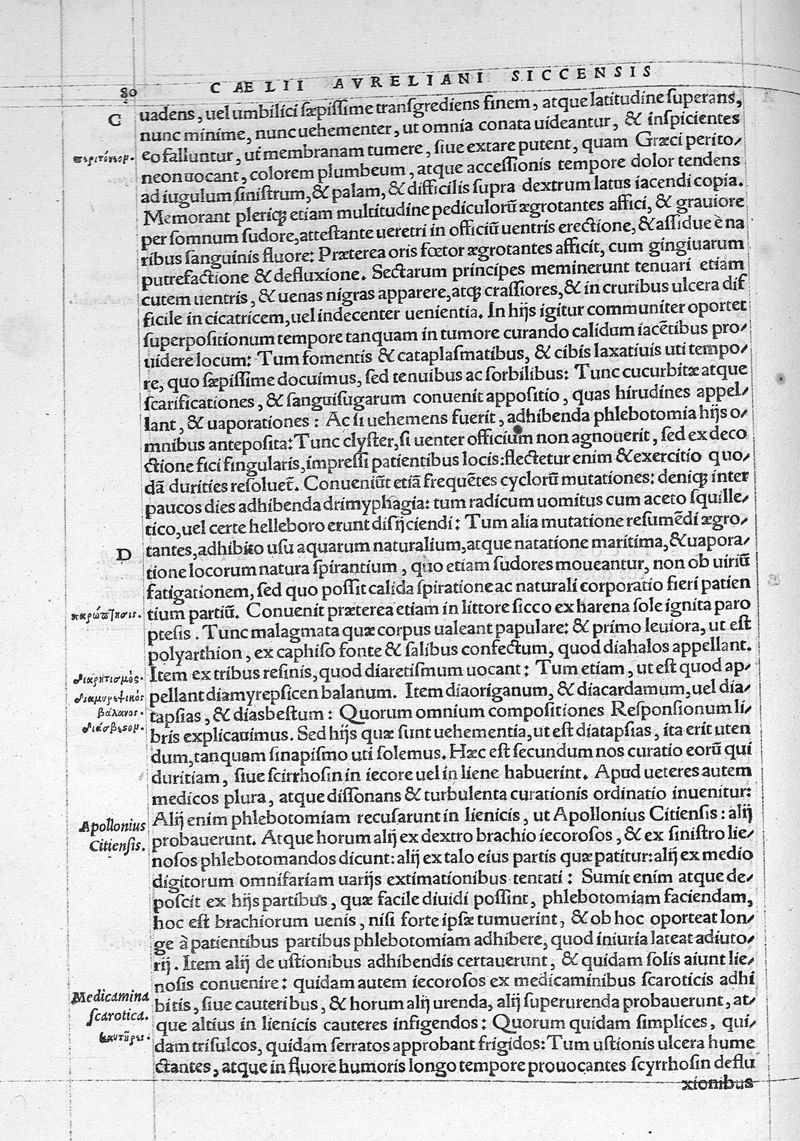 80 CÆLII AVRELIANI SICCENSIS
C
uadens, uel umbilici ſæpiſſime tranſgrediens finem, atque latitudine ſuperans,
nunc minime, nunc uehementer, ut omnia conata uideantur, & inſpicientes
περιτόναιομ.
eo falluntur, ut membranam tumere, ſiue extare putent, quam Græci perito/
neon uocant, colorem plumbeum, atque acceſſionis tempore dolor tendens
ad iugulum ſiniſtrum, & palam, & difficilis ſupra dextrum latus iacendi copia.
Memorant pleriqꝫ etiam multitudine pediculorũ ægrotantes affici, & grauiore
per ſomnum ſudore, atteſtante ueretri in officiũ uentris erectione, & aſſidue è na
ribus ſanguinis fluore: Præterea oris fœtor ægrotantes afficit, cum gingiuarum
putrefactione & defluxione. Sectarum principes meminerunt tenuari etiam
cutem uentris, & uenas nigras apparere, atqꝫ craſſiores, & in cruribus ulcera dif
ficile in cicatricem, uel indecenter uenientia. In hijs igitur communiter oportet
ſuperpoſitionum tempore tanquam in tumore curando calidum iacẽtibus pro/
uidere locum: Tum fomentis & cataplaſmatibus, & cibis laxatiuis uti tempo/
re, quo ſæpiſſime docuimus, ſed tenuibus ac ſorbilibus: Tunc cucurbitæ atque
ſcarificationes, & ſanguiſugarum conuenit appoſitio, quas hirudines appel/
lant, & uaporationes: Ac ſi uehemens fuerit, adhibenda phlebotomia hijs o/
mnibus antepoſita: Tunc clyſter, ſi uenter officium non agnouerit, ſed ex deco
ctione fici ſingularis, impreſſi patientibus locis: flectetur enim & exercitio quo/
dã durities reſoluet̃. Conueniũt etiã frequẽtes cyclorũ mutationes: deniqꝫ inter
paucos dies adhibenda drimyphagia: tum radicum uomitus cum aceto ſquille/
tico, uel certe helleboro erunt diſijciendi: Tum alia mutatione reſumẽdi ægro/
D
tantes, adhibito uſu aquarum naturalium, atque natatione maritima, & uapora/
tione locorum natura ſpirantium, quo etiam ſudores moueantur, non ob uiriũ
fatigationem, ſed quo poſſit calida ſpiratione ac naturali corporatio fieri patien
tium partiũ. Conuenit præterea etiam in littore ſicco ex harena ſole ignita paro
pteſis. Tunc malagmata quæ corpus ualeant papulare: & primo leuiora, ut eſt
polyarthion, ex caphiſo fonte & ſalibus confectum, quod diahalos appellant.
Item ex tribus reſinis, quod diaretiſmum uocant: Tum etiam, ut eſt quod ap/
διαρητισμός.
διαμυρεψικὸς
pellant diamyrepſicen balanum. Item diaoriganum, & diacardamum, uel dia/
βάλανος.
tapſias, & diasbeſtum: Quorum omnium compoſitiones Reſponſionum li/
διάσβεστομ.
bris explicauimus. Sed hijs quæ ſunt uehementia, ut eſt diatapſias, ita erit uten
dum, tanquam ſinapiſmo uti ſolemus. Hæc eſt ſecundum nos curatio eorũ qui
duritiam, ſiue ſcirrhoſin in iecore uel in liene habuerint. Apud ueteres autem
medicos plura, atque diſſonans & turbulenta curationis ordinatio inuenitur:
Apollonius
Citienſis.
Alij enim phlebotomiam recuſarunt in lienicis, ut Apollonius Citienſis: alij
probauerunt. Atque horum alij ex dextro brachio iecoroſos, & ex ſiniſtro lie/
noſos phlebotomandos dicunt: alij ex talo eius partis quæ patitur: alij ex medio
digitorum omnifariam uarijs extimationibus tentati: Sumit enim atque de/
poſcit ex hijs partibus, quæ facile diuidi poſſint, phlebotomiam faciendam,
hoc eſt brachiorum uenis, niſi forte ipſæ tumuerint, & ob hoc oporteat lon/
ge à patientibus partibus phlebotomiam adhibere, quod iniuria lateat adiuto/
rij. Item alij de uſtionibus adhibendis certauerunt, & quidam ſolis aiunt lie/
noſis conuenire: quidam autem iecoroſos ex medicaminibus ſcaroticis adhi
Medicamina
ſcarotica.
bitis, ſiue cauteribus, & horum alij urenda, alij ſuperurenda probauerunt, at/
que altius in lienicis cauteres infigendos: Quorum quidam ſimplices, qui/
καυτῆρες.
dam triſulcos, quidam ſerratos approbant frigidos: Tum uſtionis ulcera hume
ctantes, atque in fluore humoris longo tempore prouocantes ſcyrrhoſin deflu
xionibus